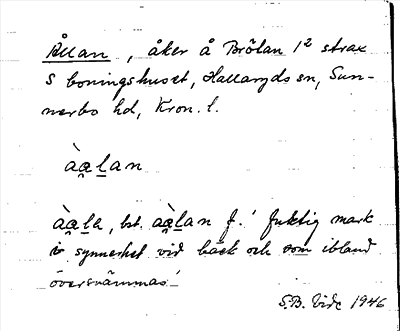 Ållan, åker å Brölan 1² strax
S boningshuset, Hallaryds sn, Sun-
nerbo hd, Kron. l.
àa̰l̲an
àa̰la, bst. àa̰l̲an f. 'fuktig mark
i synnerhet vid bäck och som ibland
översvämmas'
S.B. Vide 1946